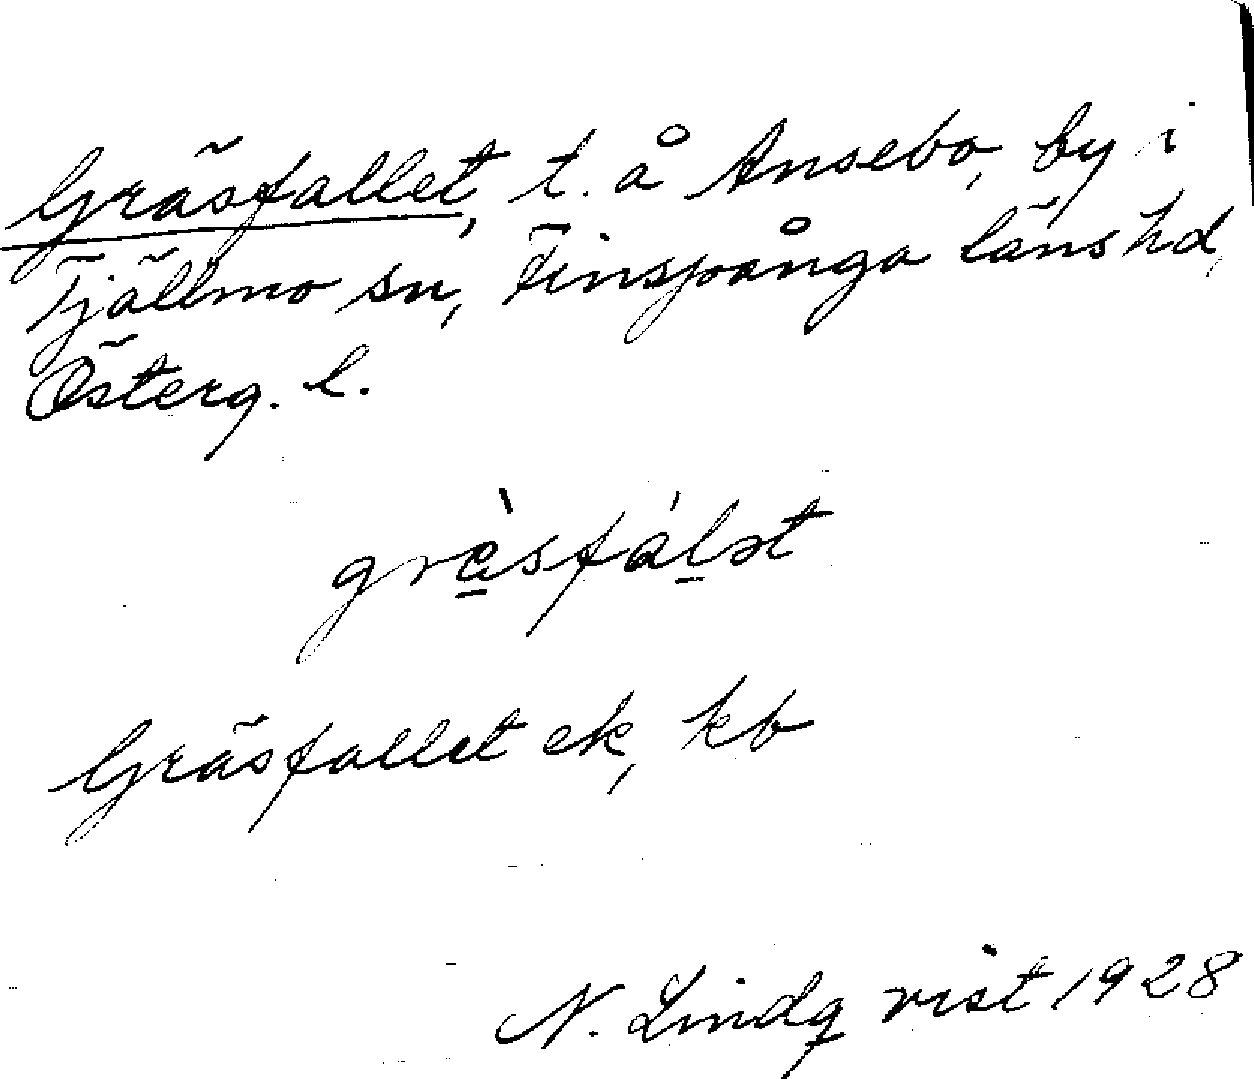 Gräsfallet, t. å Ansebo, by i
Tjällmo sn, Finspånga läns hd,
Österg. l.
grὰsfálət
Gräsfallet ek, kb
N. Lindqvist 1928